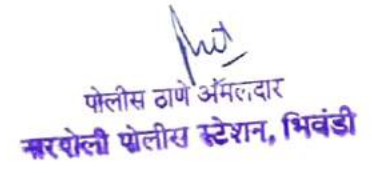 पोलीस ठाणे अंमलदार
नारपोली पोलीस स्टेशन, भिवंडी